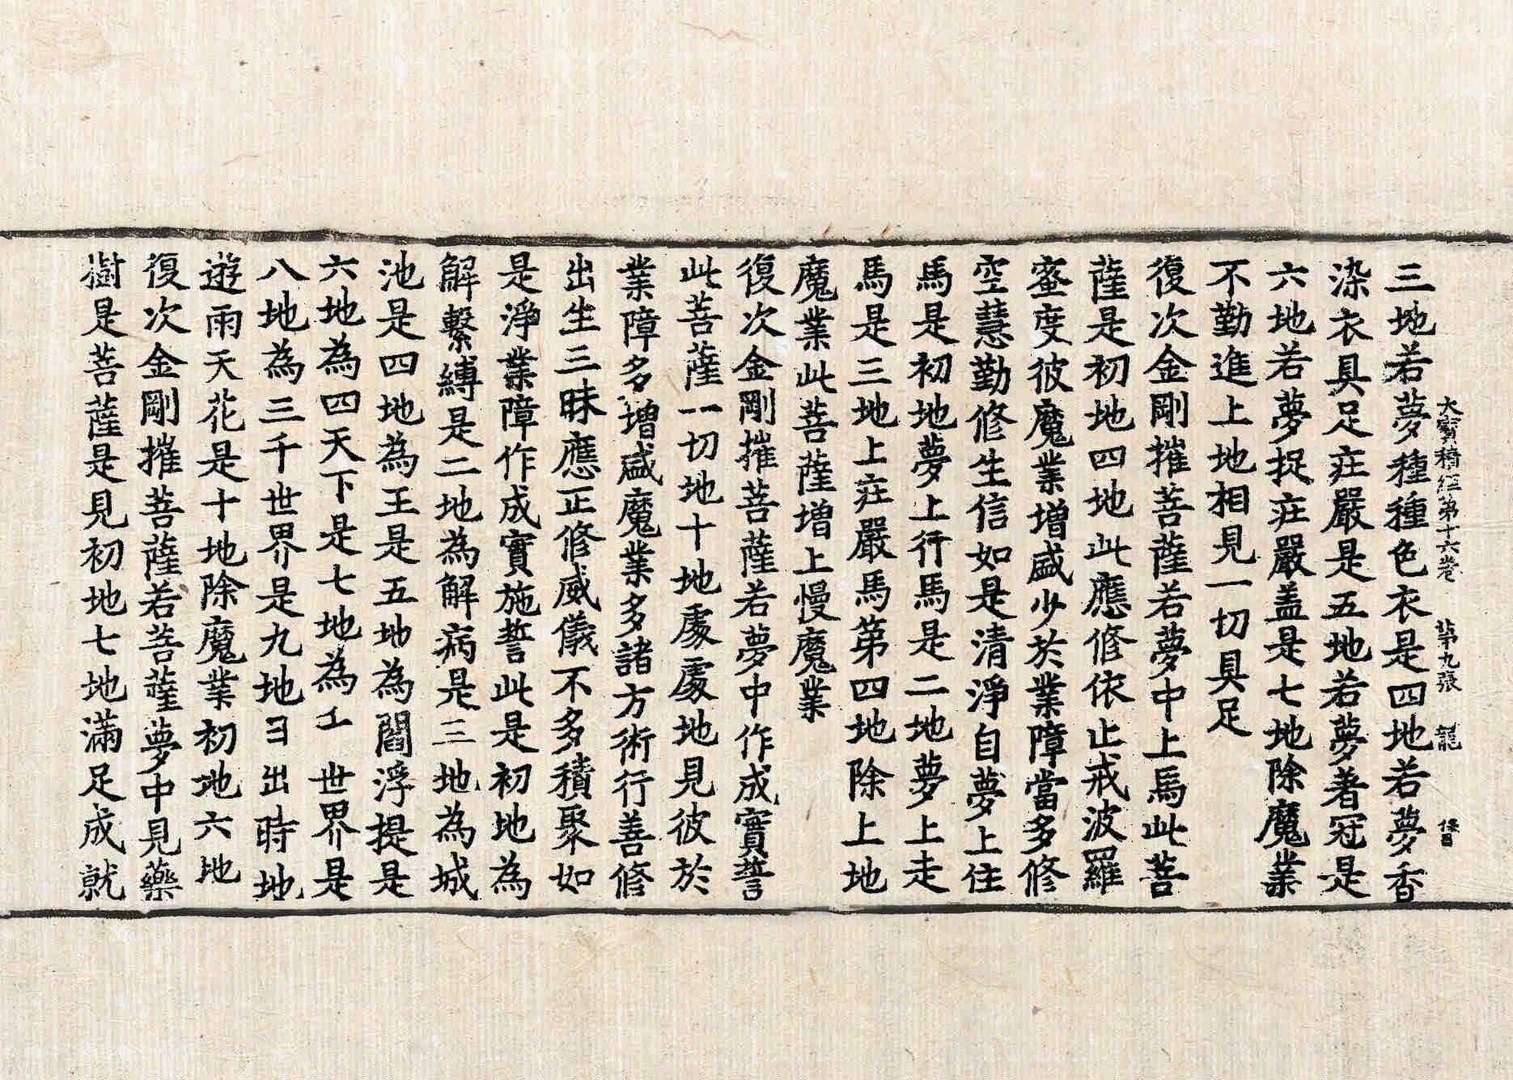 大寶積經第十六卷　第九張　龍
三地若夢種種色衣是四地若夢香
染衣具足庄嚴是五地若夢著冠是
六地若夢捉庄嚴盖是七地除魔業
不勤進上地相見一切具足
復次金剛摧菩薩若夢中上馬此菩
薩是初地四地此應修依止戒波羅
蜜度彼魔業增盛少於業障當多修
空慧勤修生信如是清淨自夢上住
馬是初地夢上行馬是二地夢上走
馬是三地上庄嚴馬第四地除上地
魔業此菩薩增上慢魔業
復次金剛摧菩薩若夢中作成實誓
此菩薩一切地十地處處地見彼於
業障多增盛魔業多諸方術行善修
出生三昧應正修威儀不多積聚如
是淨業障作成實施誓此是初地為
解繫縛是二地為解病是三地為城
池是四地為王是五地為閻浮提是
六地為四天下是七地為世界是
八地為三千世界是九地出時地
遊雨天花是十地除魔業初地六地
復次金剛摧菩薩若菩薩夢中見藥
樹是菩薩是見初地七地滿足成就